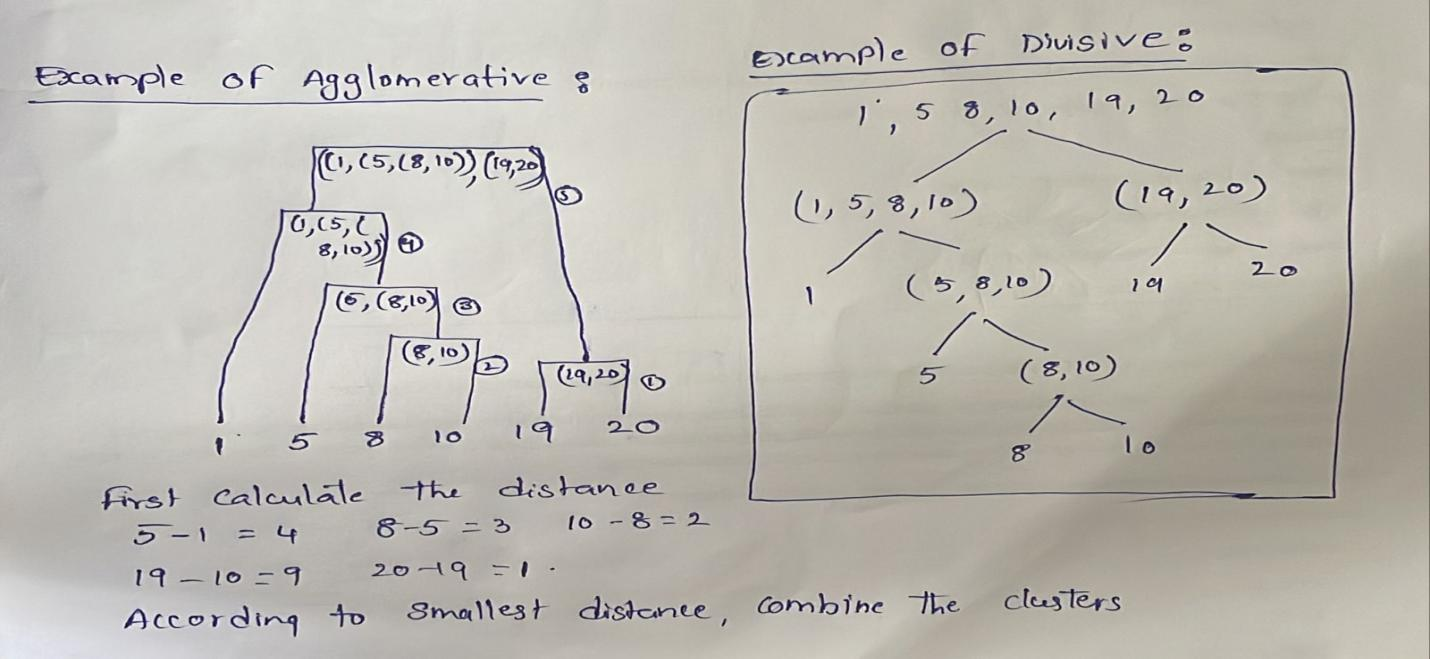 Example of Agglomerative :
((1, (5, (8, 10)), (19,20)
⑤
(1, (5, (
8, 10))
④
(5, (8,10)
③
(8, 10)
②
(19,20)
①
1 5 8 10 19 20
First Calculate the distance
5 - 1 = 4 8 - 5 = 3 10 - 8 = 2
19 - 10 = 9 20 - 19 = 1.
According to smallest distance, combine the clusters
Example of Divisive :
1, 5 8, 10, 19, 20
(1, 5, 8, 10) (19, 20)
1 (5, 8, 10) 19 20
5 (8, 10)
8 10